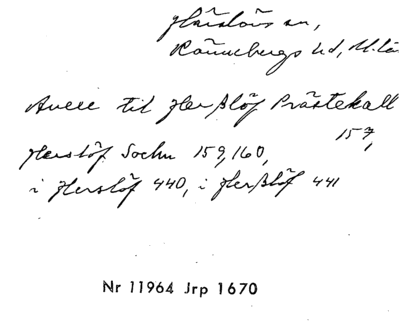 Härslövs sn,
Rönnebergs hd, M.lä
til Herßlöf Prästekall
157,
Herslöf Sochn 159, 160,
i Herslöf 440, i Herßlöf 441
Nr 11964 Jrp 1670